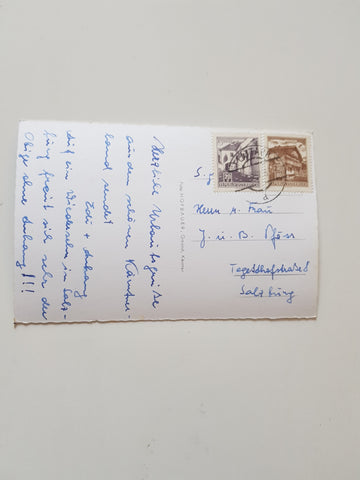 Herzliche Urlaubsgrüße
aus dem schönen Kärntner-
land sendet
Edi + Anhang
Auf ein Wiedersehen in Salz-
burg freut sich sehr der
Obige ohne Anhang!!!
Foto HOFBAUER
S.g.
Herrn u. Frau
J. u. B.
Tegetthofstraße 8
Salzburg